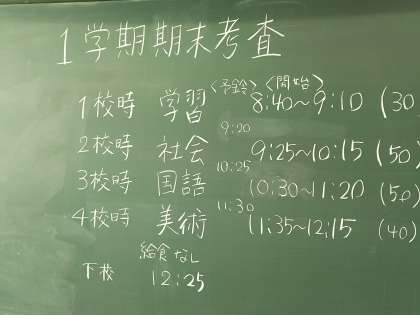 1学期期末考査
〈予鈴〉 〈開始〉
1校時 学習 8:40～9:10 (30
2校時 社会 9:20 9:25～10:15 (50)
3校時 国語 10:25 10:30～11:20 (50)
4校時 美術 11:30 11:35～12:15 (40)
給食なし
下校 12:25